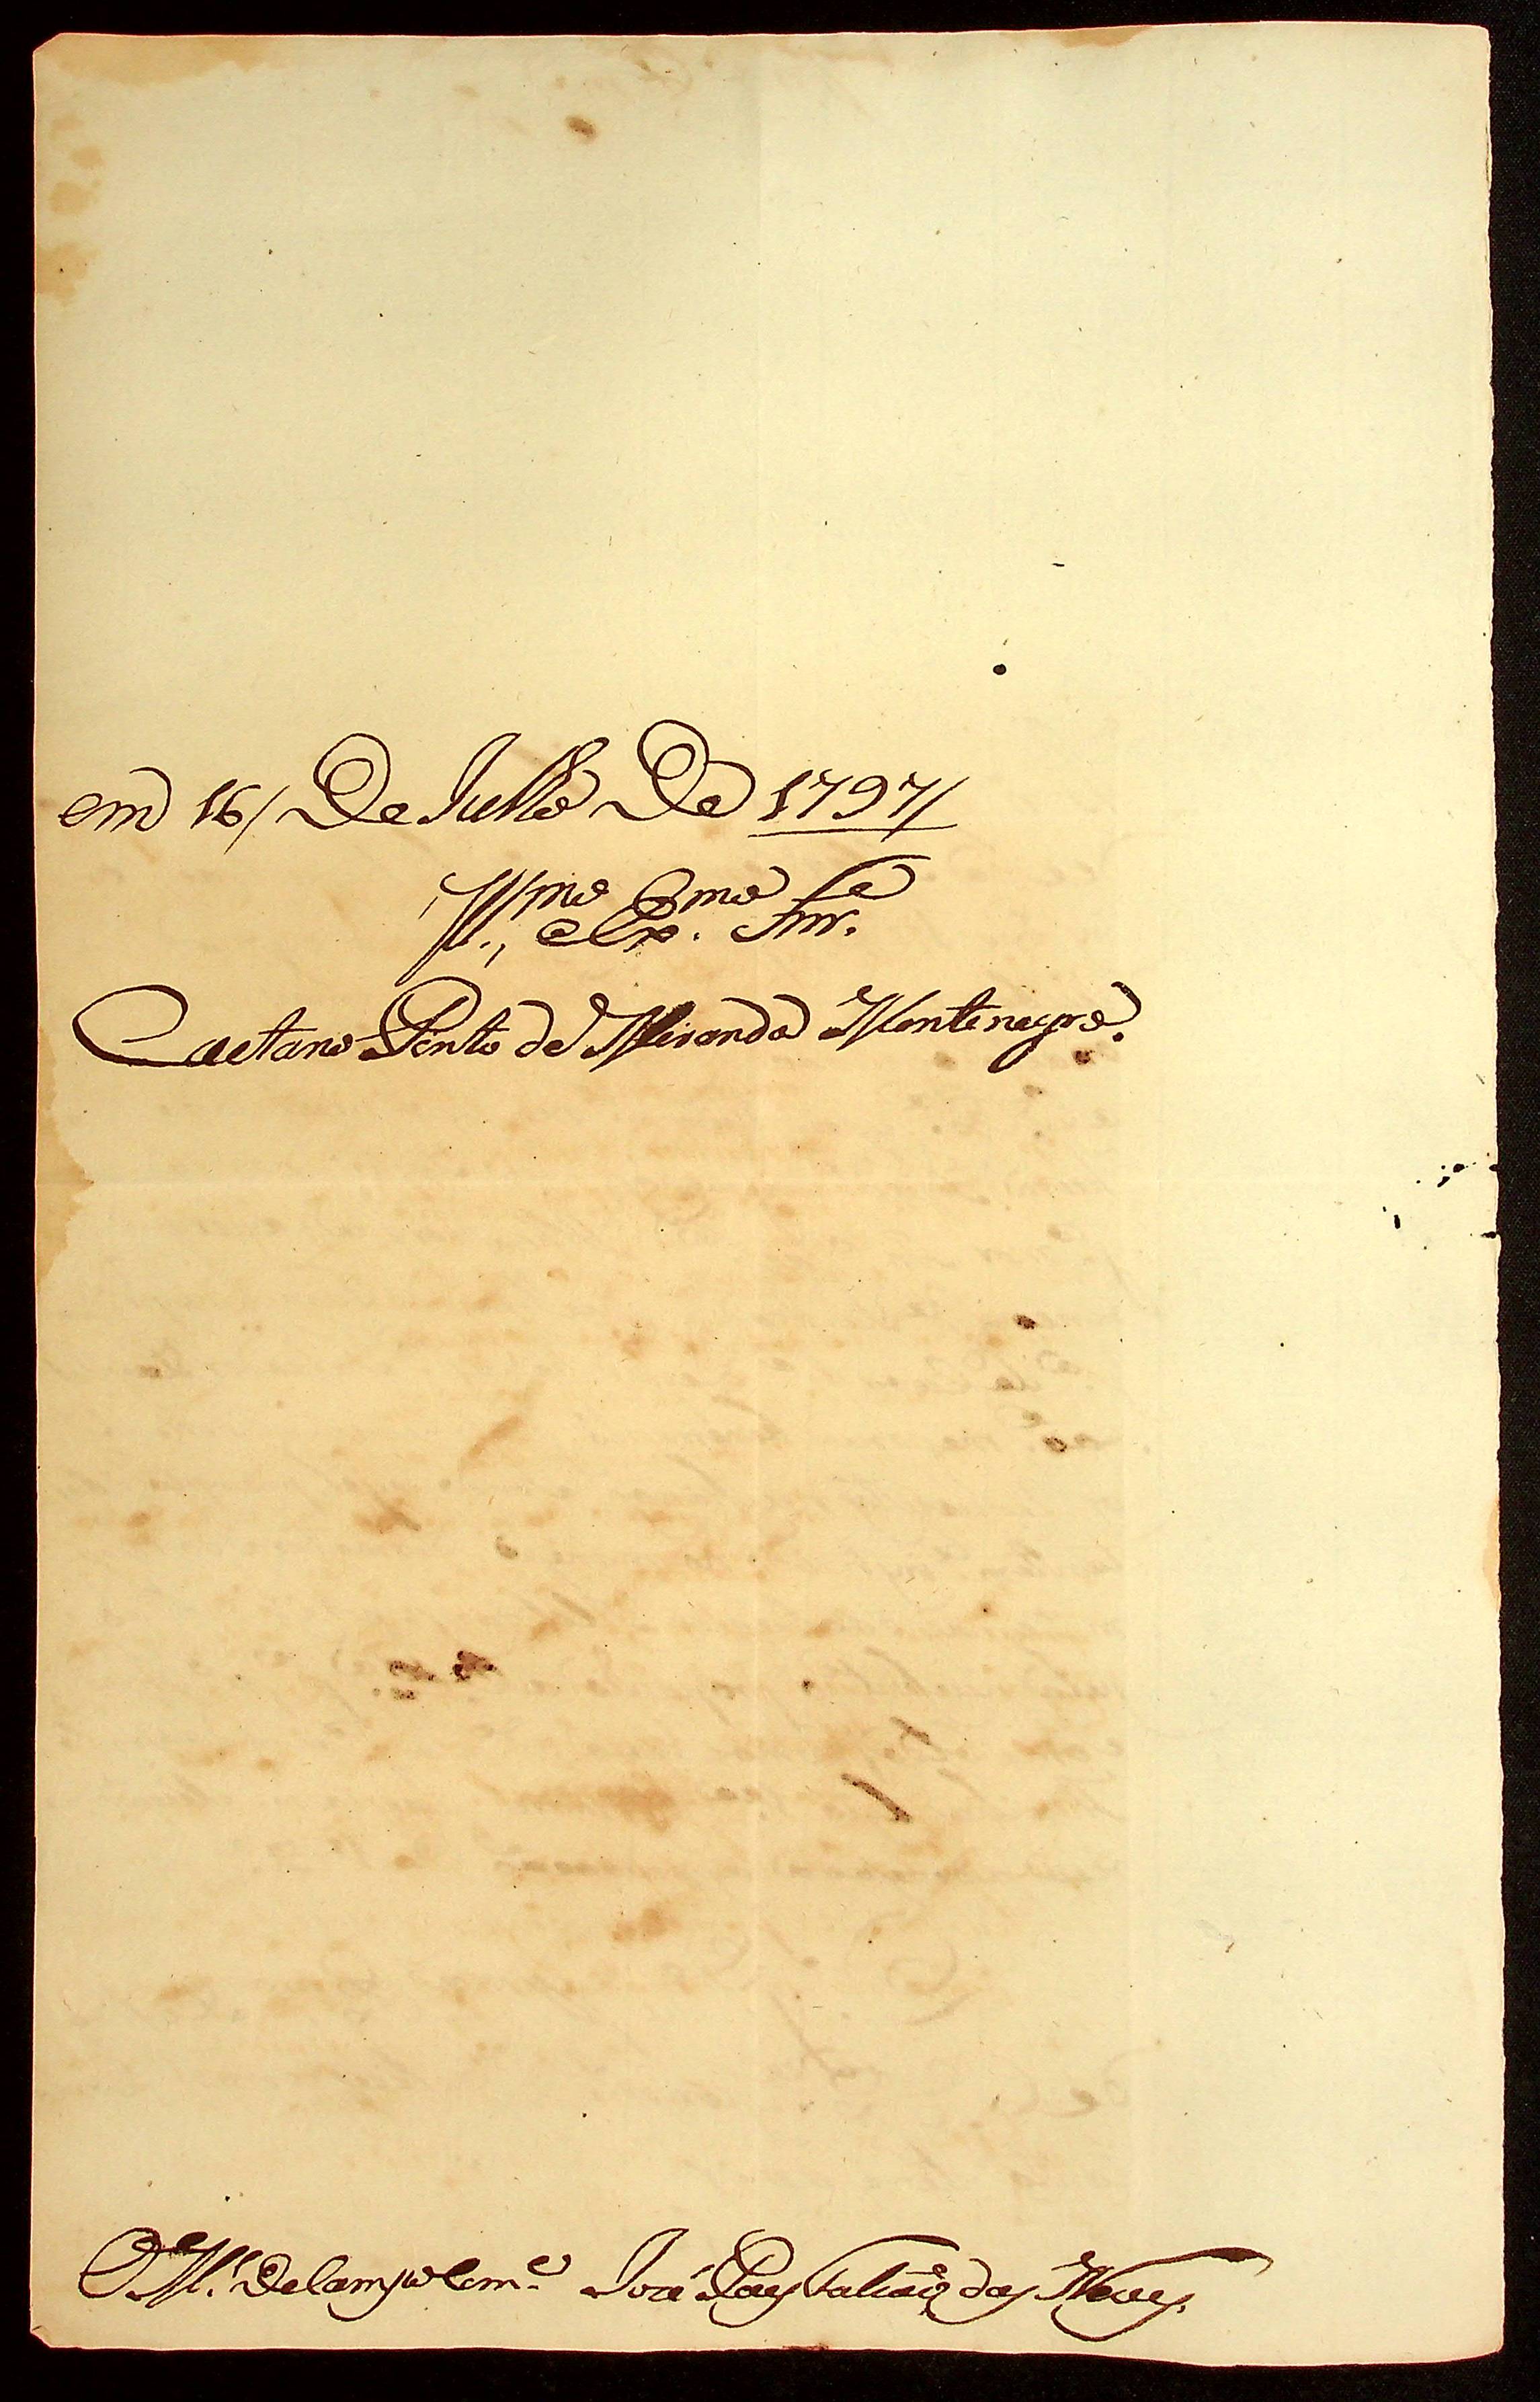 em 16/ De Julho De 1797/
Illmo. e Exmo. Snr.
Caetano Pinto de Miranda Montenegro.
O M.e De Campo Com.e José Paes Falcão das Neves.